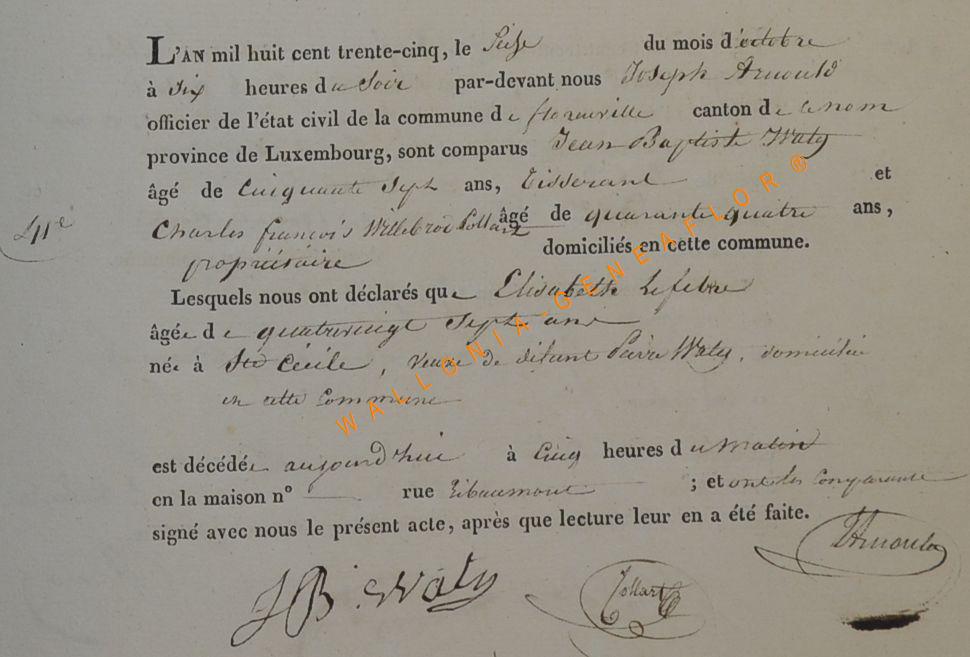 L'AN mil huit cent trente-cinq, le Seize du mois d'octobre
à Six heures du Soir par-devant nous Joseph Arnould
officier de l'état civil de la commune de florenville canton de ce nom
province de Luxembourg, sont comparus Jean Baptiste Waty
âgé de Cinquante Sept ans, Tisserant et
Charles françois Willebrod Collart âgé de quarante quatre ans,
propriétaire domiciliés en cette commune.
Lesquels nous ont déclarés que Elisabette Lefebre
âgée de quatrevingt Sept ans
née à Ste Cécile, veuve de défunt Pierre Waty, domiciliée
en cette Commune
est décédée aujourd'hui à Cinq heures du matin
en la maison n° rue ; et ont les Comparants
signé avec nous le présent acte, après que lecture leur en a été faite.
JB Waty
Collart
JArnould
WALLONIA-GENEAFLOR ®